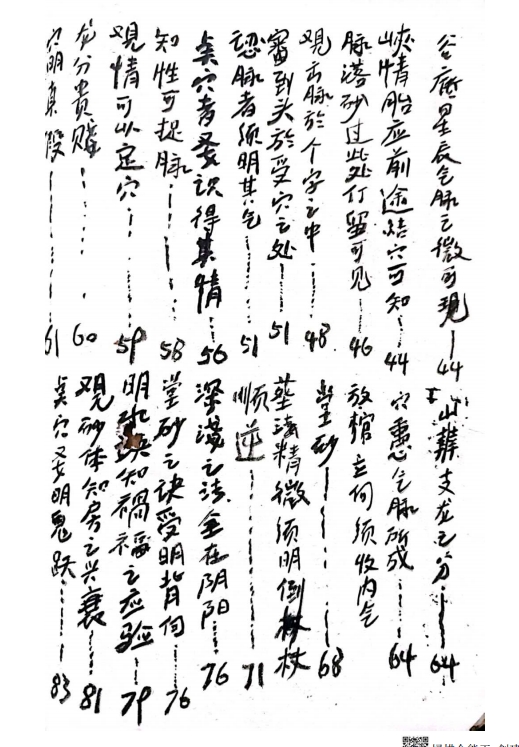 谷底星辰气脉之微可现 44
峡情胎应前途结穴可知 44
脉落砂过此处行留可见 46
观玄脉於个字之中 48
审到头於受穴之处 51
认脉者须明其气 51
点穴者又要识得其情 56
知性可捉脉 58
观情可以定穴 59
龙分贵贱 60
穴明真假 61
山龙支龙之分 64
穴忌气脉所成 64
放棺立向须收内气
坐砂 68
葬法精微须明倒杖
顺逆 71
深浅之法全在阴阳 76
堂砂之诀要明背向 76
明水决知祸福之应验 79
观砂体知房之兴衰 81
点穴要明鬼跃 83